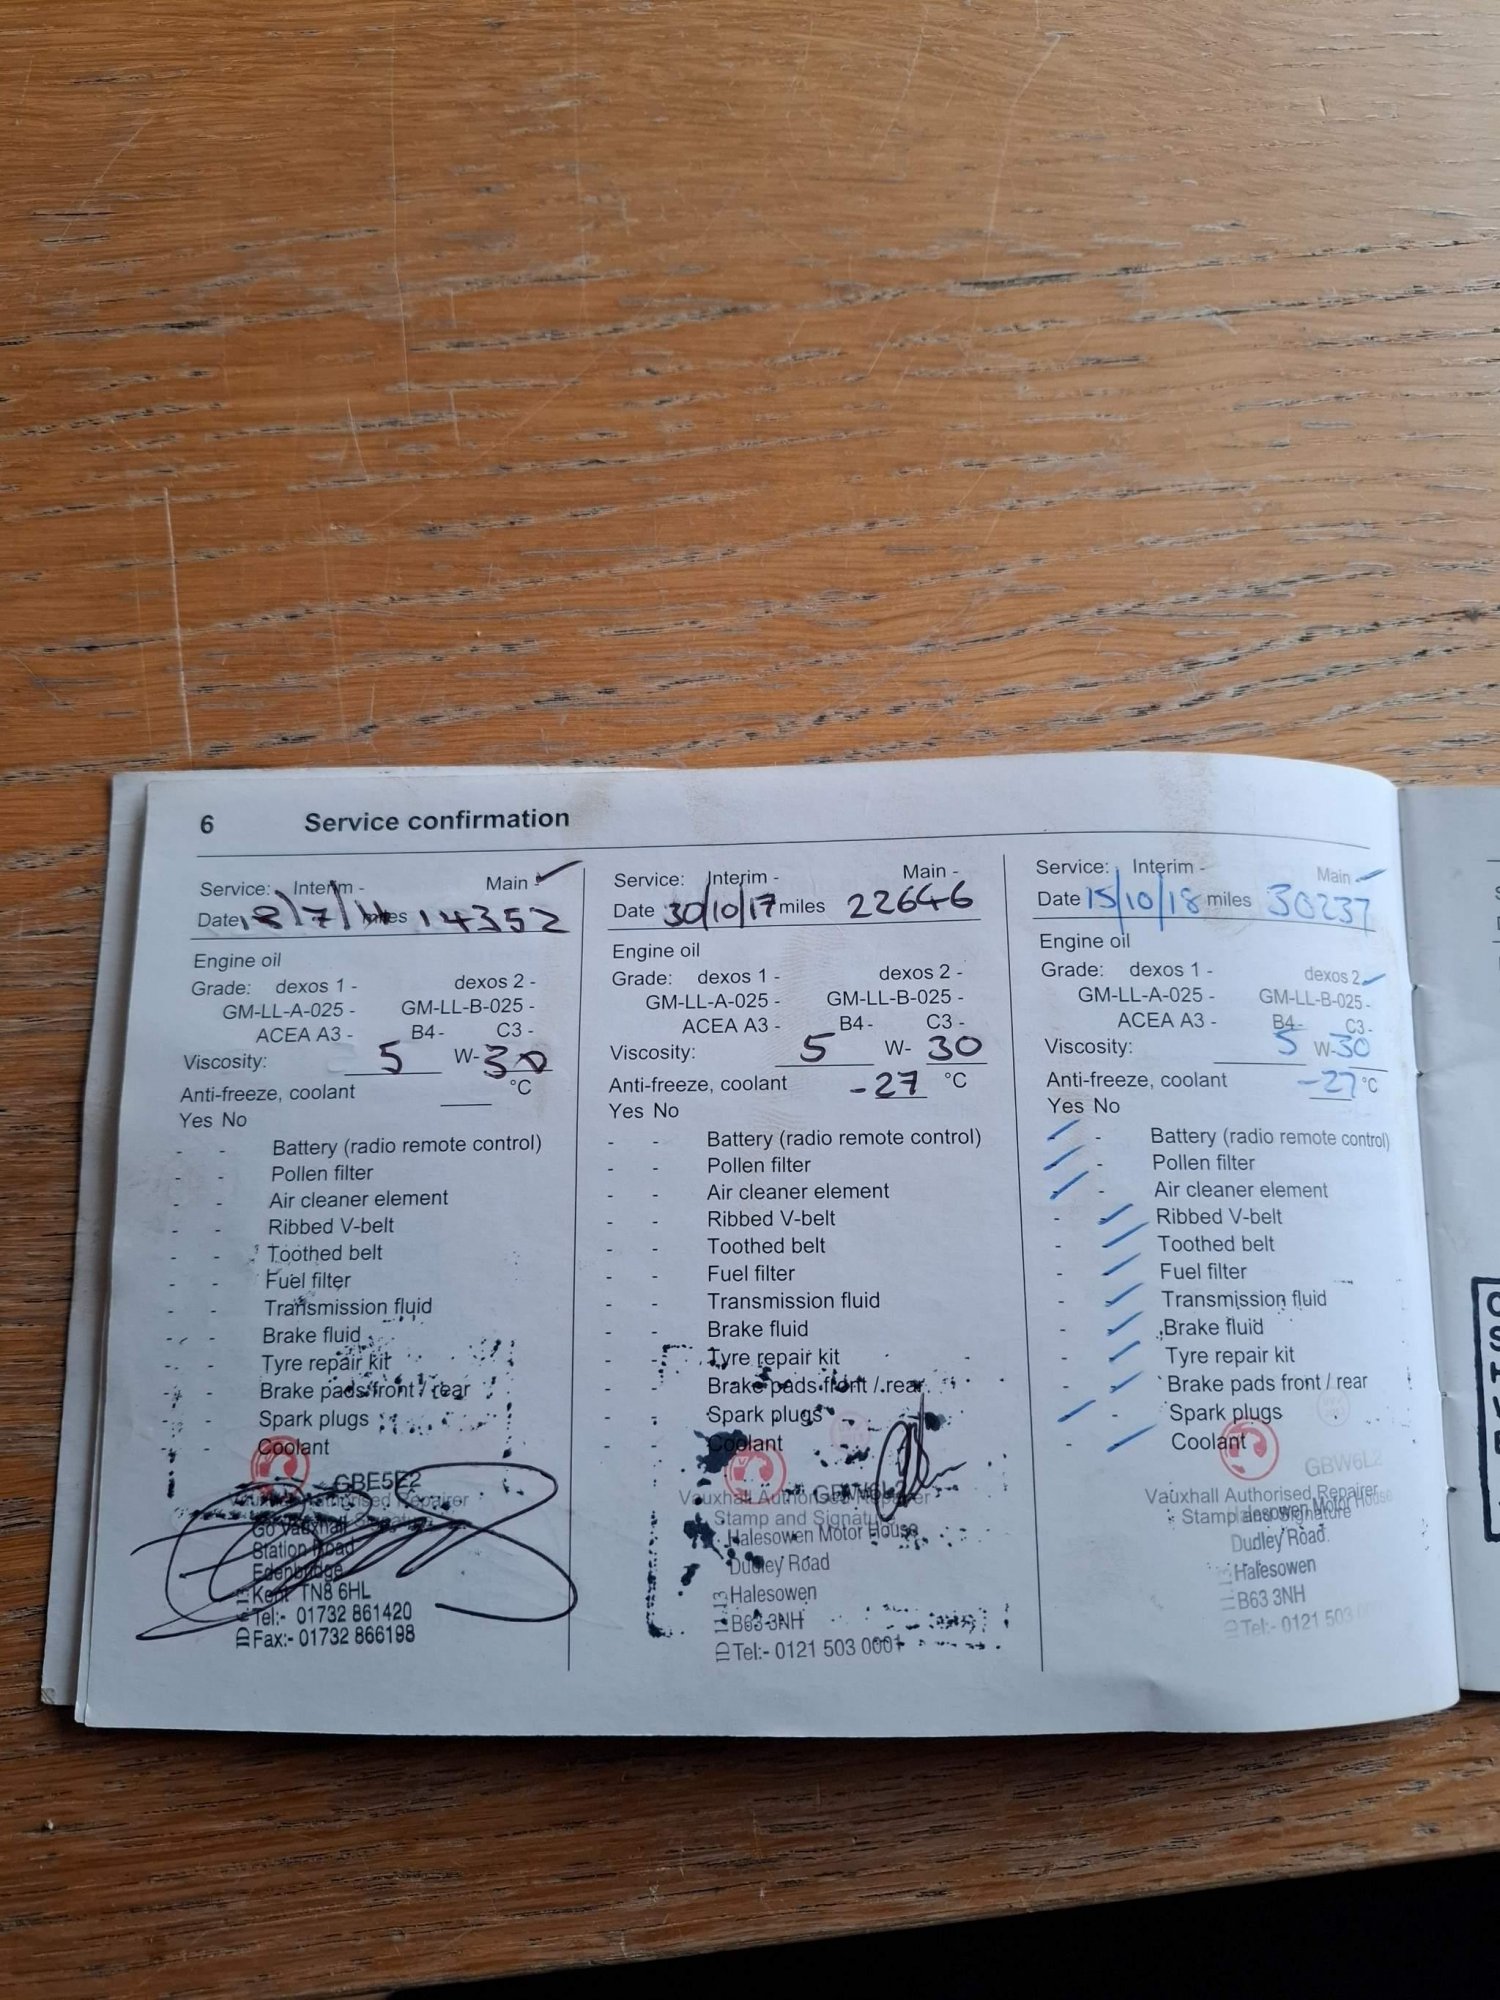 6 Service confirmation
Service: Interim - Main -
Date miles 14352
Engine oil
Grade: dexos 1 - dexos 2 -
GM-LL-A-025 - GM-LL-B-025 -
ACEA A3 - B4 - C3 -
Viscosity: 5 W- 30
Anti-freeze, coolant °C
Yes No
- - Battery (radio remote control)
- - Pollen filter
- - Air cleaner element
- - Ribbed V-belt
- - Toothed belt
- - Fuel filter
- - Transmission fluid
- - Brake fluid
- - Tyre repair kit
- - Brake pads front / rear
- - Spark plugs
- - Coolant
GBE5E2
Vauxhall Authorised Repairer
Stamp and Signature
Go Vauxhall
Station Road
Edenbridge
Kent TN8 6HL
Tel:- 01732 861420
Fax:- 01732 866198
Service: Interim - Main -
Date 30/10/17 miles 22646
Engine oil
Grade: dexos 1 - dexos 2 -
GM-LL-A-025 - GM-LL-B-025 -
ACEA A3 - B4 - C3 -
Viscosity: 5 W- 30
Anti-freeze, coolant -27 °C
Yes No
- - Battery (radio remote control)
- - Pollen filter
- - Air cleaner element
- - Ribbed V-belt
- - Toothed belt
- - Fuel filter
- - Transmission fluid
- - Brake fluid
- - Tyre repair kit
- - Brake pads front / rear
- - Spark plugs
- - Coolant
GBW6L2
Vauxhall Authorised Repairer
Stamp and Signature
Halesowen Motor House
Dudley Road
Halesowen
B63 3NH
Tel:- 0121 503 0001
Service: Interim - Main - ✓
Date 15/10/18 miles 30237
Engine oil
Grade: dexos 1 - dexos 2 ✓
GM-LL-A-025 - GM-LL-B-025 -
ACEA A3 - B4 - C3 -
Viscosity: 5 W- 30
Anti-freeze, coolant -27 °C
Yes No
✓ - Battery (radio remote control)
✓ - Pollen filter
✓ - Air cleaner element
- ✓ Ribbed V-belt
- ✓ Toothed belt
- ✓ Fuel filter
- ✓ Transmission fluid
- ✓ Brake fluid
- ✓ Tyre repair kit
- ✓ Brake pads front / rear
✓ - Spark plugs
- ✓ Coolant
GBW6L2
Vauxhall Authorised Repairer
Stamp and Signature
Halesowen Motor House
Dudley Road
Halesowen
B63 3NH
Tel:- 0121 503